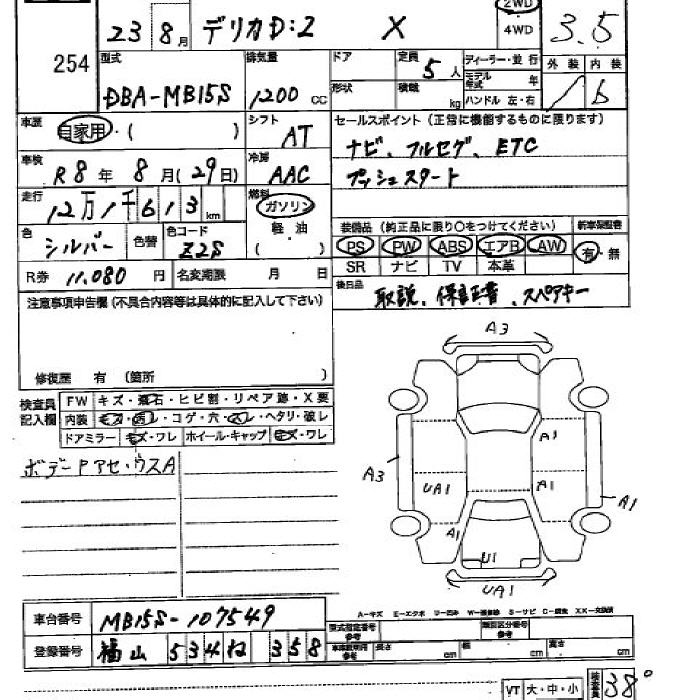 254
23 8月 デリカD:2 X
2WD
4WD
3.5
型式 DBA-MB15S
排気量 1200 CC
ドア
形状
定員 5人
積載 kg
ディーラー・並行
モデル年式 年
ハンドル 左・右
外装 内装
b
車歴 自家用・( )
シフト AT
セールスポイント (正常に機能するものに限ります)
ナビ、フルセグ、ETC
プッシュスタート
車検 R8年 8月(29日)
冷房 AAC
走行 12万1千613km
燃料 ガソリン
軽油
( )
色 シルバー 色替 色コード Z2S
装備品 (純正品に限り○をつけてください) 新車保証書
PS PW ABS エアB AW 有・無
SR ナビ TV 本革
R券 11,080 円 名変期限 月 日
後日品 取説、保証書、スペアキー
注意事項申告欄 (不具合内容等は具体的に記入して下さい)
修復歴 有 (箇所 )
検査員記入欄
FW キズ・飛石・ヒビ割・リペア跡・X要
内装 キズ・汚レ・コゲ・穴・スレ・ヘタリ・破レ
ドアミラー キズ・ワレ ホイール・キャップ キズ・ワレ
ボデーPアセ・ウスA
A3
A1
A3
UA1
A1
A1
A1
U1
UA1
A-キズ E-エクボ U-凹み W-補修跡 S-サビ C-腐食 XX-交換済
車台番号 MB15S-107549
登録番号 福山 534 ね 358
型式指定番号 参考
類別区分番号 参考
車検証明用 参考 長さ cm 幅 cm 高さ cm
VT 大・中・小
検査員 38°